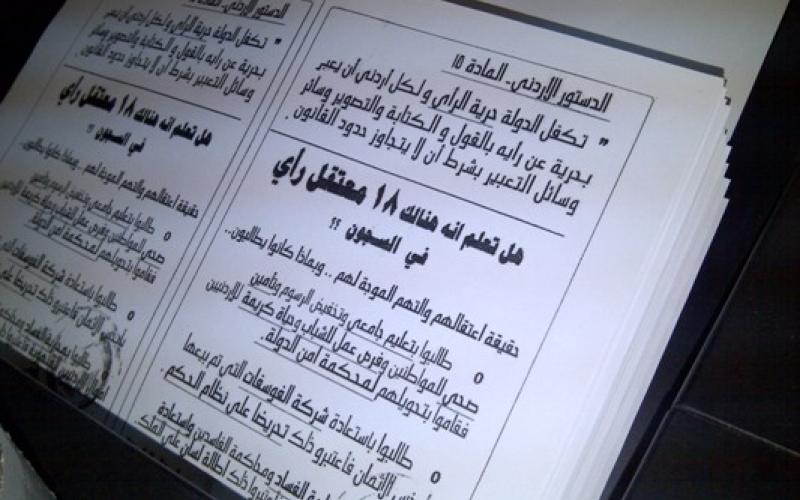 الدستور الإردني - المادة ١٥
" تكفل الدولة حرية الراي و لكل اردني أن يعبر
بحرية عن رايه بالقول و الكتابة والتصوير وسائر
وسائل التعبير بشرط ان لا يتجاوز حدود القانون .
هل تعلم انه هنالك ١٨ معتقل رأي
في السجون ؟؟
حقيقة اعتقالهم والتهم الموجة لهم .. وبماذا كانوا يطالبون..
o طالبوا بتعليم جامعي وتخفيض الرسوم وتأمين
صحي للمواطنين وفرص عمل للشباب وحياة كريمة للإردنيين
فقاموا بتحويلهم لمحكمة امن الدولة .
o طالبوا باستعادة شركة الفوسفات التي تم بيعها
الاثمان فاعتبرو ذلك تحريضا على نظام الحكم .
الفساد ومحاكمة الفاسدين واستعادة
ذلك اطالة لسان على الملك
الدستور الإردني - المادة
" تكفل الدولة حرية الراي و لكل اردني أن يعبر
بحرية عن رايه بالقول و الكتابة والتصوير وسائر
وسائل التعبير بشرط ان لا يتجاوز حدود القانون
هل تعلم انه هنالك ١٨ معتقل رأي
في السجون ؟؟
حقيقة اعتقالهم والتهم الموجة لهم .. وبماذا كانوا يطالبون..
o طالبوا بتعليم جامعي وتخفيض الرسوم وتأمين
صحي للمواطنين وفرص عمل للشباب وحياة كريمة
فقاموا بتحويلهم لمحكمة امن الدولة
o طالبوا باستعادة شركة الفوسفات
الاثمان فاعتبرو ذلك
o طالبوا